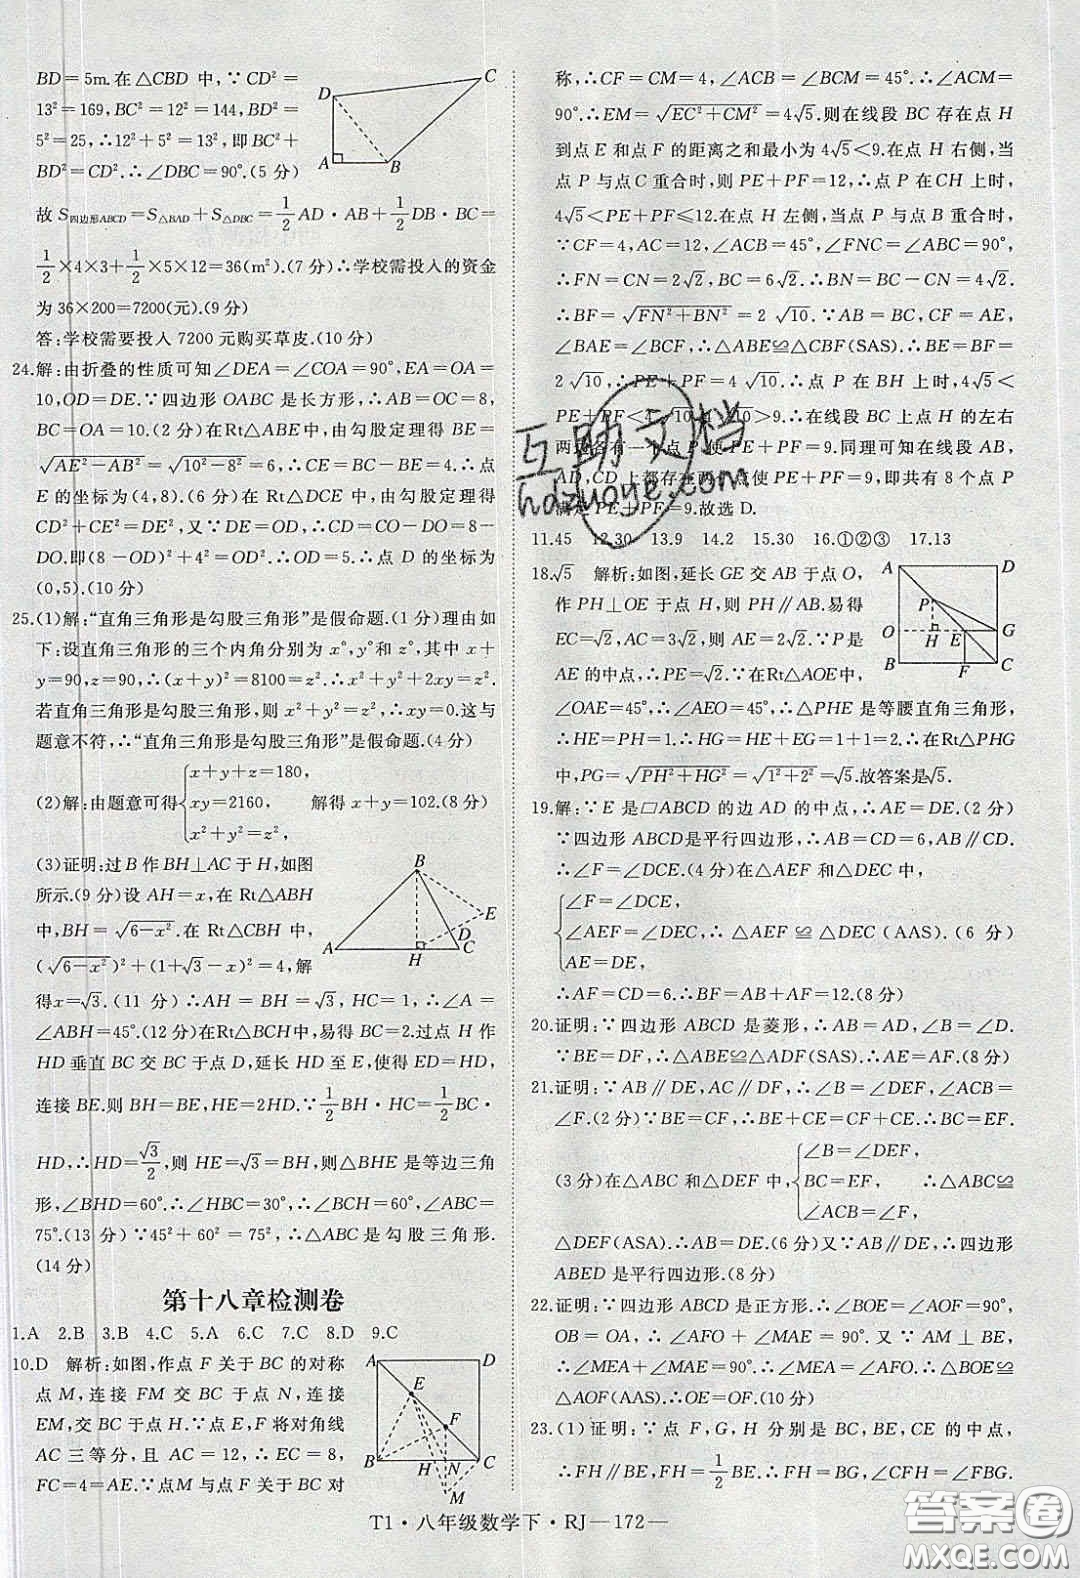 BD=5m.在△CBD 中,∵CD²=
13²=169,BC²=12²=144,BD²=
5²=25,∴12²+5²=13²,即BC²+
BD²=CD².∴∠DBC=90°.(5分)
故S四边形ABCD=S△BAD+S△DBC=1/2AD·AB+1/2DB·BC=
1/2×4×3+1/2×5×12=36(m²).(7分)∴学校需投入的资金
为36×200=7200(元).(9分)
答:学校需要投入7200元购买草皮.(10分)
24.解:由折叠的性质可知∠DEA=∠COA=90°,EA=OA=
10,OD=DE.∵四边形OABC是长方形,∴AB=OC=8,
BC=OA=10.(2分)在Rt△ABE中,由勾股定理得BE=
√AE²−AB²=√10²−8²=6.∴CE=BC−BE=4.∴点
E的坐标为(4,8).(6分)在Rt△DCE中,由勾股定理得
CD²+CE²=DE²,又∵DE=OD,∴CD=OC−DO=8−
DO.即(8−OD)²+4²=OD².∴OD=5.∴点D的坐标为
(0,5).(10分)
25.(1)解:“直角三角形是勾股三角形”是假命题.(1分)理由如
下:设直角三角形的三个内角分别为x°,y°和z°,其中x+
y=90,z=90,∴(x+y)²=8100=z².∴x²+y²+2xy=z².
若直角三角形是勾股三角形,则x²+y²=z²,∴xy=0.这与
题意不符,∴“直角三角形是勾股三角形”是假命题.(4分)
(2)解:由题意可得{x+y+z=180, xy=2160, x²+y²=z², 解得x+y=102.(8分)
(3)证明:过B作BH⊥AC于H,如图
所示.(9分)设AH=x,在Rt△ABH
中,BH=√6−x².在Rt△CBH中,
(√6−x²)²+(1+√3−x)²=4,解
得x=√3.(11分)∴AH=BH=√3,HC=1,∴∠A=
∠ABH=45°.(12分)在Rt△BCH中,易得BC=2.过点H作
HD垂直BC交BC于点D,延长HD至E,使得ED=HD,
连接BE.则BH=BE,HE=2HD.∵1/2BH·HC=1/2BC·
HD,∴HD=√3/2,则HE=√3=BH,∴△BHE是等边三角
形,∠BHD=60°.∴∠HBC=30°,∠BCH=60°,∠ABC=
75°.(13分)∵45²+60²=75²,∴△ABC是勾股三角形.
(14分)
第十八章检测卷
1.A 2.B 3.B 4.C 5.A 6.C 7.C 8.D 9.C
10.D 解析:如图,作点F关于BC的对称
点M,连接FM交BC于点N,连接
EM,交BC于点H.∵点E,F将对角线
AC三等分,且AC=12,∴EC=8,
FC=4=AE.∵点M与点F关于BC对
D
C
A
B
B
E
A
H
D
C
A
D
E
F
B
H
N
C
M
称,∴CF=CM=4,∠ACB=∠BCM=45°.∴∠ACM=
90°.∴EM=√EC²+CM²=4√5.则在线段BC存在点H
到点E和点F的距离之和最小为4√5<9.在点H右侧,当
点P与点C重合时,则PE+PF=12,∴点P在CH上时,
4√5<PE+PF≤12.在点H左侧,当点P与点B重合时,
∵CF=4,AC=12,∠ACB=45°,∠FNC=∠ABC=90°,
∴FN=CN=2√2,BC=6√2.∴BN=BC−CN=4√2.
∴BF=√FN²+BN²=2√10.∵AB=BC,CF=AE,
∠BAE=∠BCF,∴△ABE≌△CBF(SAS).∴BE=BF=
2√10,∴PE+PF=4√10.∴点P在BH上时,4√5<
PE+PF≤4√10.∵4√10>9.∴在线段BC上点H的左右
两边各有一个点P使PE+PF=9.同理可知在线段AB,
AD,CD上都存在两个点使PE+PF=9,即共有8个点P
满足PE+PF=9.故选D.
11.45 12.30 13.9 14.2 15.30 16.①②③ 17.13
18.√5 解析:如图,延长GE交AB于点O,
作PH⊥OE于点H,则PH∥AB.易得
EC=√2,AC=3√2,则AE=2√2.∵P是
AE的中点,∴PE=√2.∵在Rt△AOE中,
∠OAE=45°,∴∠AEO=45°,∴△PHE是等腰直角三角形,
∴HE=PH=1.∴HG=HE+EG=1+1=2.∴在Rt△PHG
中,PG=√PH²+HG²=√1²+2²=√5.故答案是√5.
A
D
P
O
H
E
G
B
F
C
19.解:∵E是□ABCD的边AD的中点,∴AE=DE.(2分)
∵四边形ABCD是平行四边形,∴AB=CD=6,AB∥CD.
∴∠F=∠DCE.(4分)在△AEF和△DEC中,
{∠F=∠DCE, ∠AEF=∠DEC, AE=DE, ∴△AEF≌△DEC(AAS).(6分)
∴AF=CD=6.∴BF=AB+AF=12.(8分)
20.证明:∵四边形ABCD是菱形,∴AB=AD,∠B=∠D.
∵BE=DF,∴△ABE≌△ADF(SAS).∴AE=AF.(8分)
21.证明:∵AB∥DE,AC∥DF,∴∠B=∠DEF,∠ACB=
∠F.(2分)∵BE=CF,∴BE+CE=CF+CE.∴BC=EF.
(3分)在△ABC和△DEF中,{∠B=∠DEF, BC=EF, ∠ACB=∠F, ∴△ABC≌
△DEF(ASA).∴AB=DE.(6分)又∵AB∥DE,∴四边形
ABED是平行四边形.(8分)
22.证明:∵四边形ABCD是正方形.∴∠BOE=∠AOF=90°,
OB=OA,∴∠AFO+∠MAE=90°.又∵AM⊥BE,
∴∠MEA+∠MAE=90°,∴∠MEA=∠AFO.∴△BOE≌
△AOF(AAS).∴OE=OF.(10分)
23.(1)证明:∵点F,G,H分别是BC,BE,CE的中点,
∴FH∥BE,FH=1/2BE=BG.∴FH=BG,∠CFH=∠CBG.
T1·八年级数学下·RJ—172—
互助文档
hdzuoye.com
答案圈
MXQE.COM